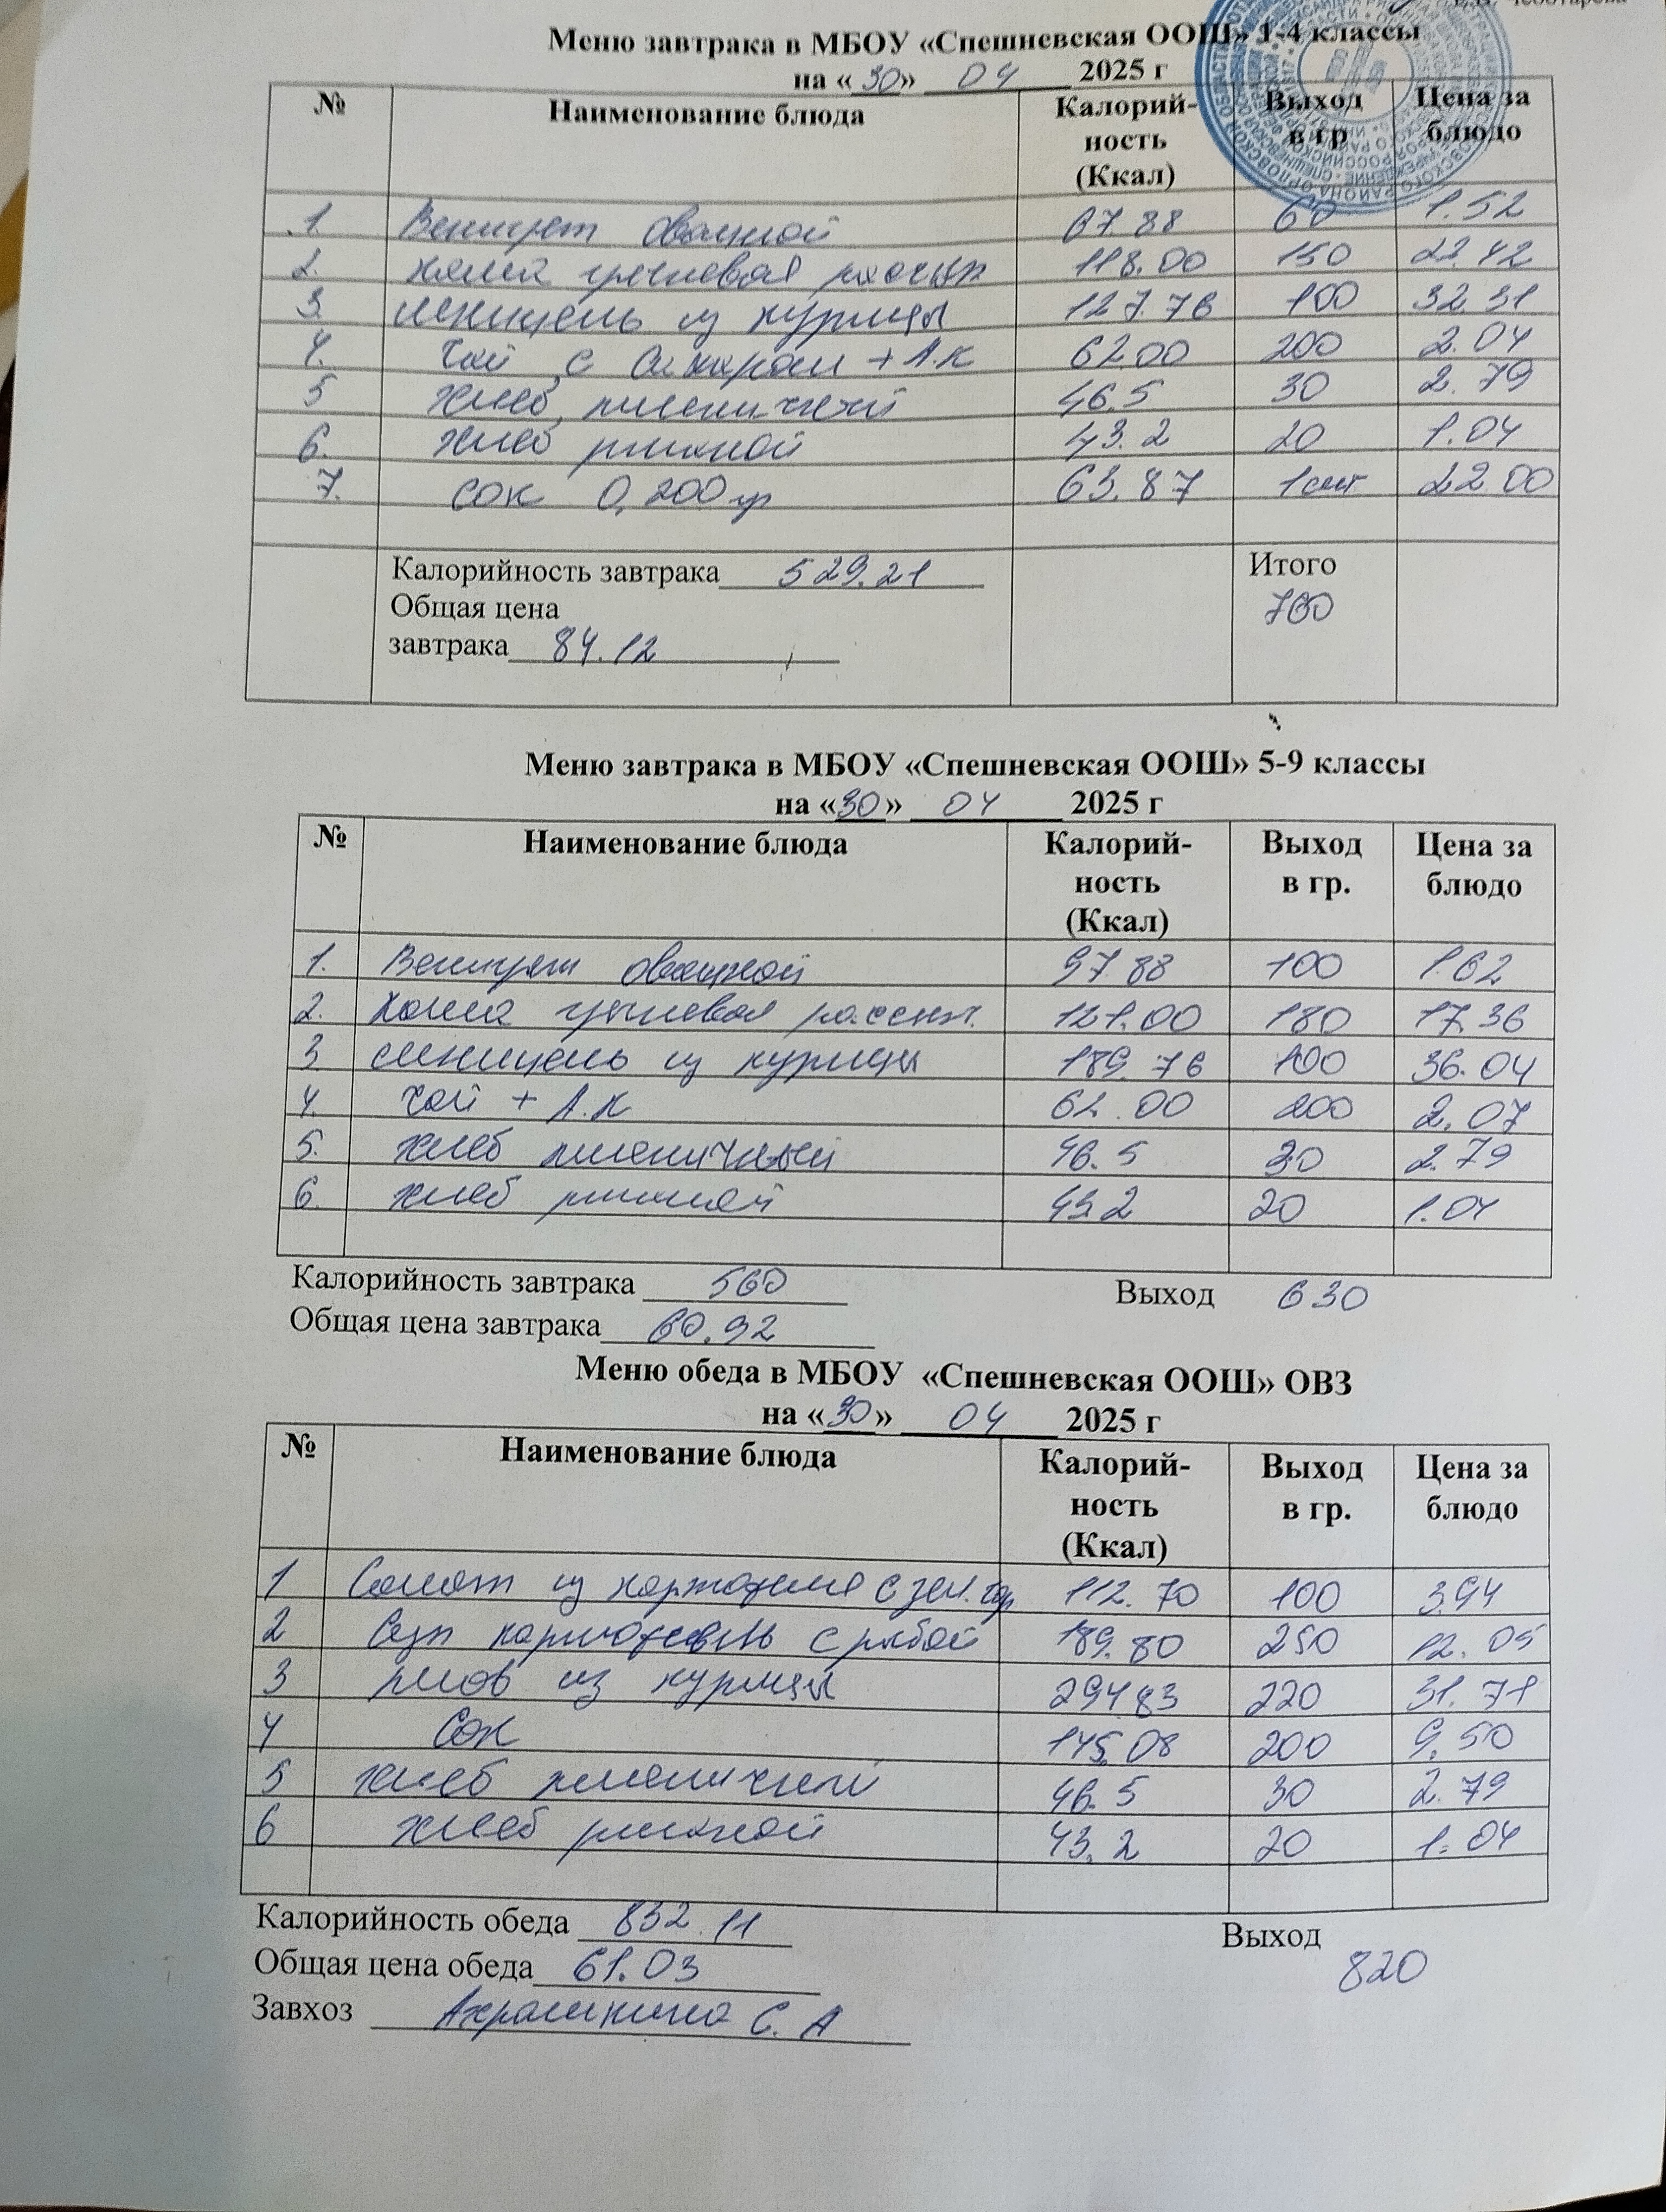 Меню завтрака в МБОУ «Спешневская ООШ» 1-4 классы
на «30» 04 2025 г
№ Наименование блюда Калорий-ность (Ккал) Выход в гр Цена за блюдо
1 Винегрет овощной 67.88 60 1.52
2. каша гречневая рассып 118.00 150 22.42
3. шницель из курицы 127.76 100 32.31
4. чай с сахаром + А.К 62.00 200 2.04
5 хлеб пшеничный 46.5 30 2.79
6. хлеб ржаной 43.2 20 1.04
7. сок 0,200 гр 63.87 1 шт 22.00
Калорийность завтрака 529.21 Итого
Общая цена 760
завтрака 84.12
Меню завтрака в МБОУ «Спешневская ООШ» 5-9 классы
на «30» 04 2025 г
№ Наименование блюда Калорий-ность (Ккал) Выход в гр. Цена за блюдо
1. Винегрет овощной 97.88 100 1.62
2. каша гречневая рассып. 121.00 180 17.36
3 шницель из курицы 189.76 100 36.04
4. чай + А.К 62.00 200 2.07
5. хлеб пшеничный 46.5 30 2.79
6. хлеб ржаной 43.2 20 1.04
Калорийность завтрака 560 Выход 630
Общая цена завтрака 60.92
Меню обеда в МБОУ «Спешневская ООШ» ОВЗ
на «30» 04 2025 г
№ Наименование блюда Калорий-ность (Ккал) Выход в гр. Цена за блюдо
1 Салат из картофеля с зел. гор 112.70 100 3.94
2 Суп картофель с рыбой 189.80 250 12.05
3 плов из курицы 294.83 220 31.71
4 Сок 145.08 200 9.50
5 хлеб пшеничный 46.5 30 2.79
6 хлеб ржаной 43.2 20 1.04
Калорийность обеда 832.11 Выход
Общая цена обеда 61.03 820
Завхоз С. А